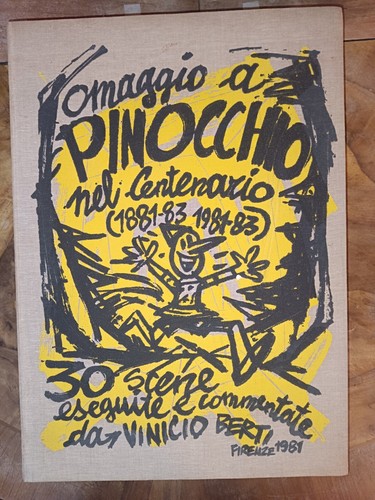 omaggio a
PINOCCHIO
nel Centenario
(1881-83 1981-83)
30 scene
eseguite e commentate
da VINICIO BERTI
FIRENZE 1981